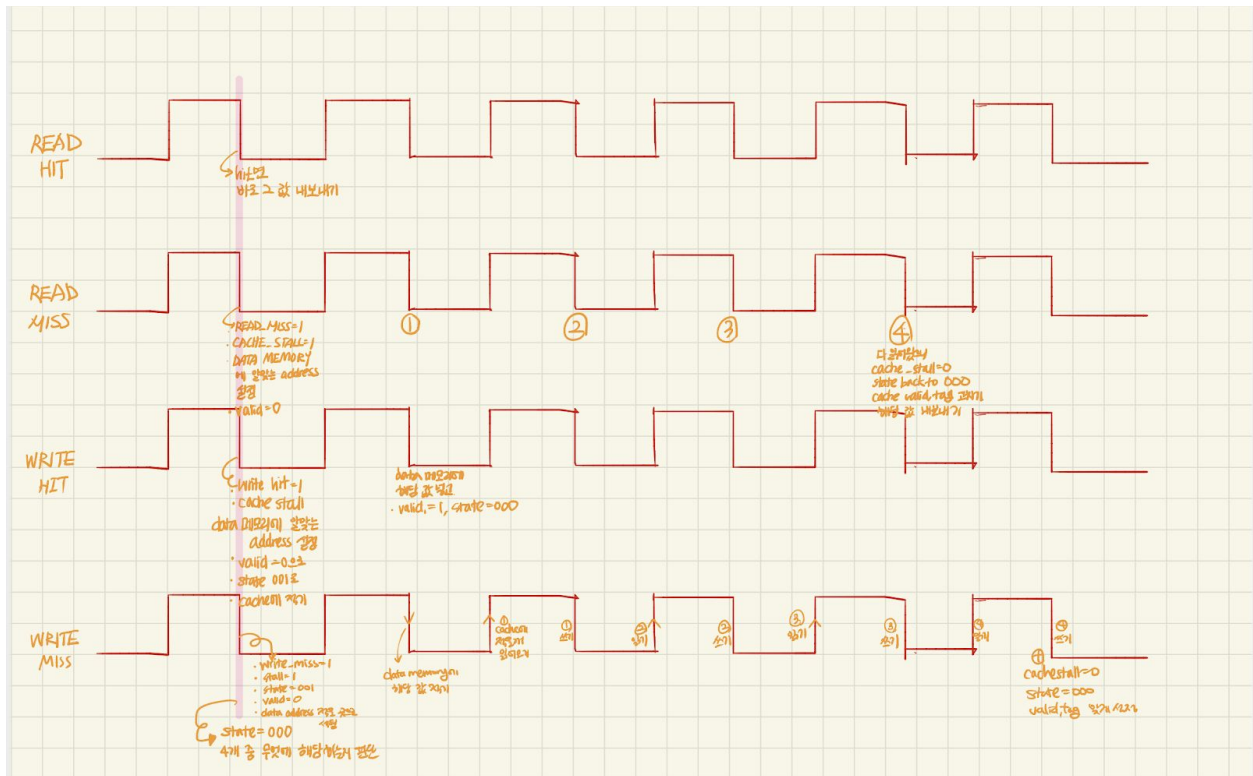 READ
HIT
hit면
바로 그 값 내보내기
READ
MISS
· READ_MISS=1
· CACHE_STALL=1
· DATA MEMORY
에 알맞는 address
설정
· valid=0
①
②
③
④
다 읽어왔으니
cache_stall=0
state back to 000
cache valid, tag 고치기
해당 값 내보내기
WRITE
HIT
· Write hit=1
· cache stall
data 메모리에 알맞는
address 설정
· valid=0으로
· state 001로
· cache에 적기
data 메모리에
해당 값
· valid=1, state=000
WRITE
MISS
· Write_miss=1
· stall=1
· state=001
· valid=0
· data address
state=000
4개 중 무엇에 해당하는지 판단
data memory에
해당 값 적기
①
①
쓰기
②
읽기
②
쓰기
③
읽기
③
쓰기
④
읽기
④
쓰기
④
cachestall=0
state=000
valid, tag 맞게 설정